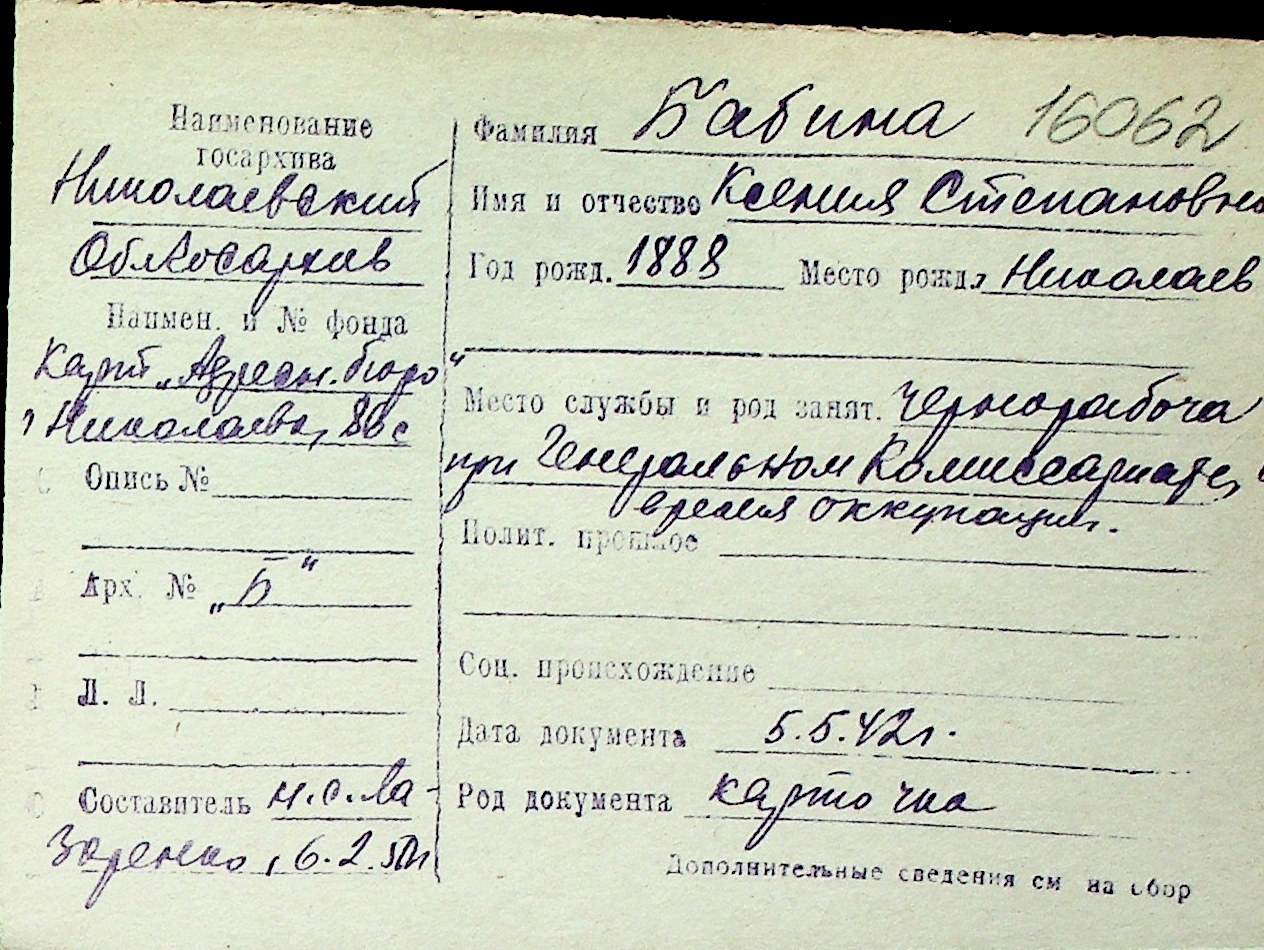 Наименование
госархива
Николаевский
Облгосархив
Наимен. и № фонда
Карт. „Адресн. бюро"
г Николаева,
Опись №
Арх. № „Б"
Л. Л.
Составитель Н.С. Ла-
заренко, 6.2.50г
Фамилия Бабина 16062
Имя и отчество Ксения Степановна
Год рожд. 1888 Место рожд. Николаев
Место службы и род занят. чернорабоча
при Генеральном Комиссариате,
время оккупации.
Полит. прошлое
Соц. происхождение
Дата документа 5.5.42г.
Род документа карточка
Дополнительные сведения см на обор